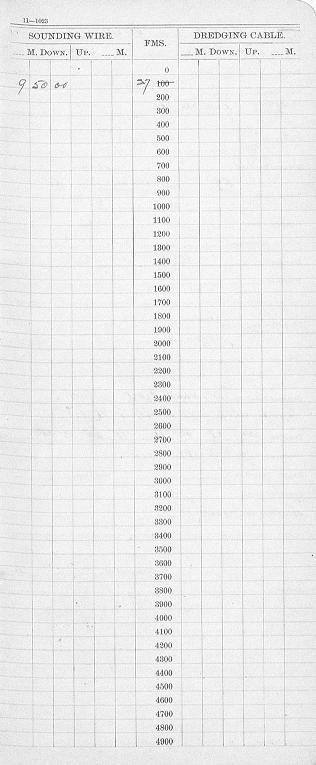 11—1023
SOUNDING WIRE. FMS. DREDGING CABLE.
M. DOWN. UP. M. M. DOWN. UP. M.
0
9 50 00 37 100
200
300
400
500
600
700
800
900
1000
1100
1200
1300
1400
1500
1600
1700
1800
1900
2000
2100
2200
2300
2400
2500
2600
2700
2800
2900
3000
3100
3200
3300
3400
3500
3600
3700
3800
3900
4000
4100
4200
4300
4400
4500
4600
4700
4800
4900